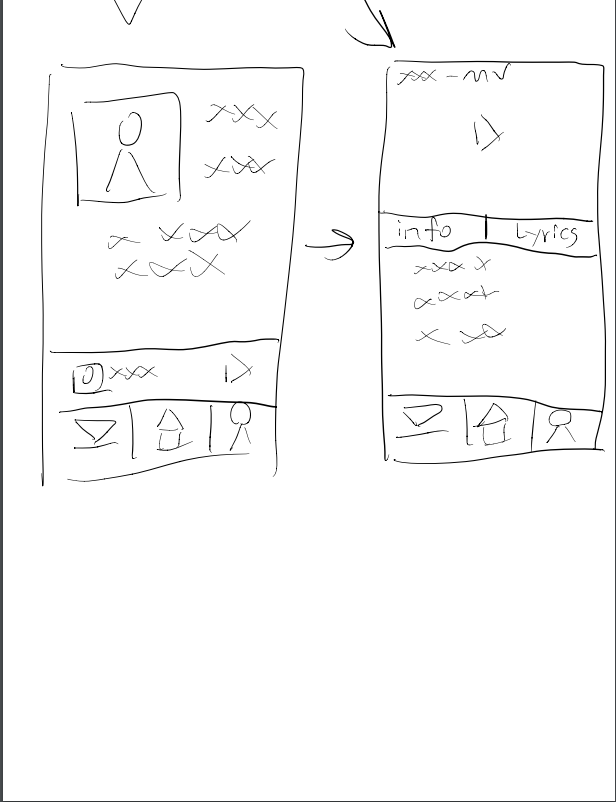 xxx
xxx
x xxxx
xxx
xxx
xxx - MV
info | Lyrics
xxx x
xxxx
x xx